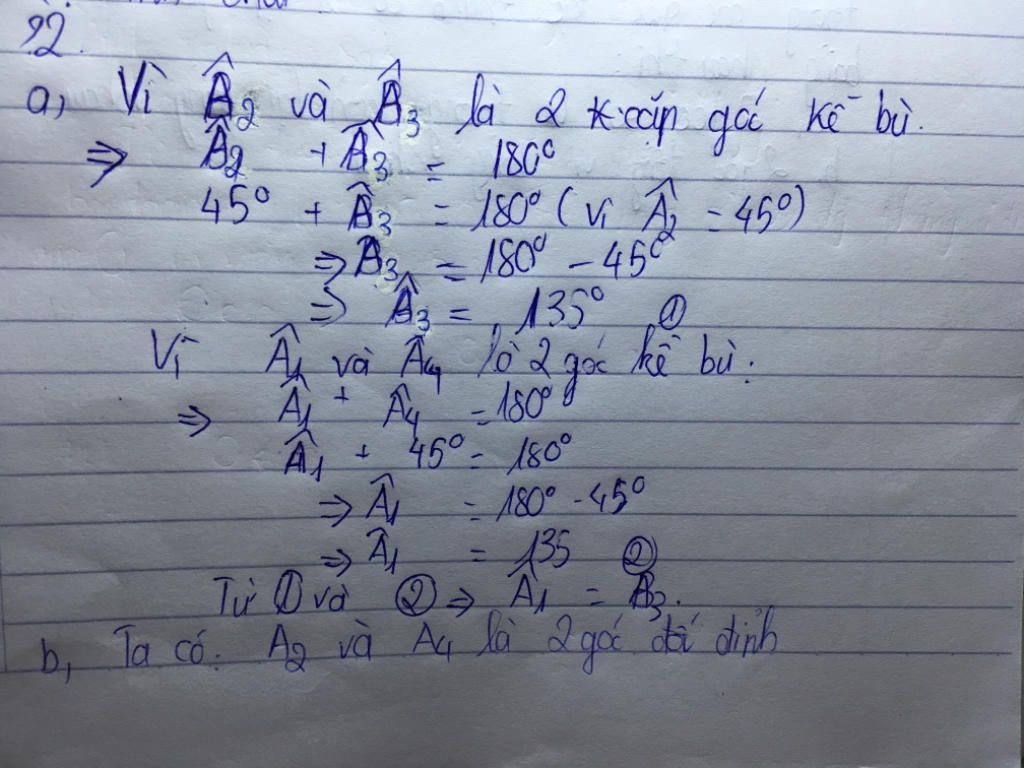 22.
a, Vì Â2 và Â3 là 2 cặp góc kề bù.
⇒ Â2 + Â3 = 180°
45° + Â3 = 180° (vì Â2 = 45°)
⇒ A3 = 180° - 45°
⇒ Â3 = 135° ①
Vì Â1 và Â4 là 2 góc kề bù.
⇒ Â1 + Â4 = 180°
Â1 + 45° = 180°
⇒ Â1 = 180° - 45°
⇒ Â1 = 135 ②
Từ ① và ② ⇒ Â1 = A3.
b, Ta có. A2 và A4 là 2 góc đối đỉnh